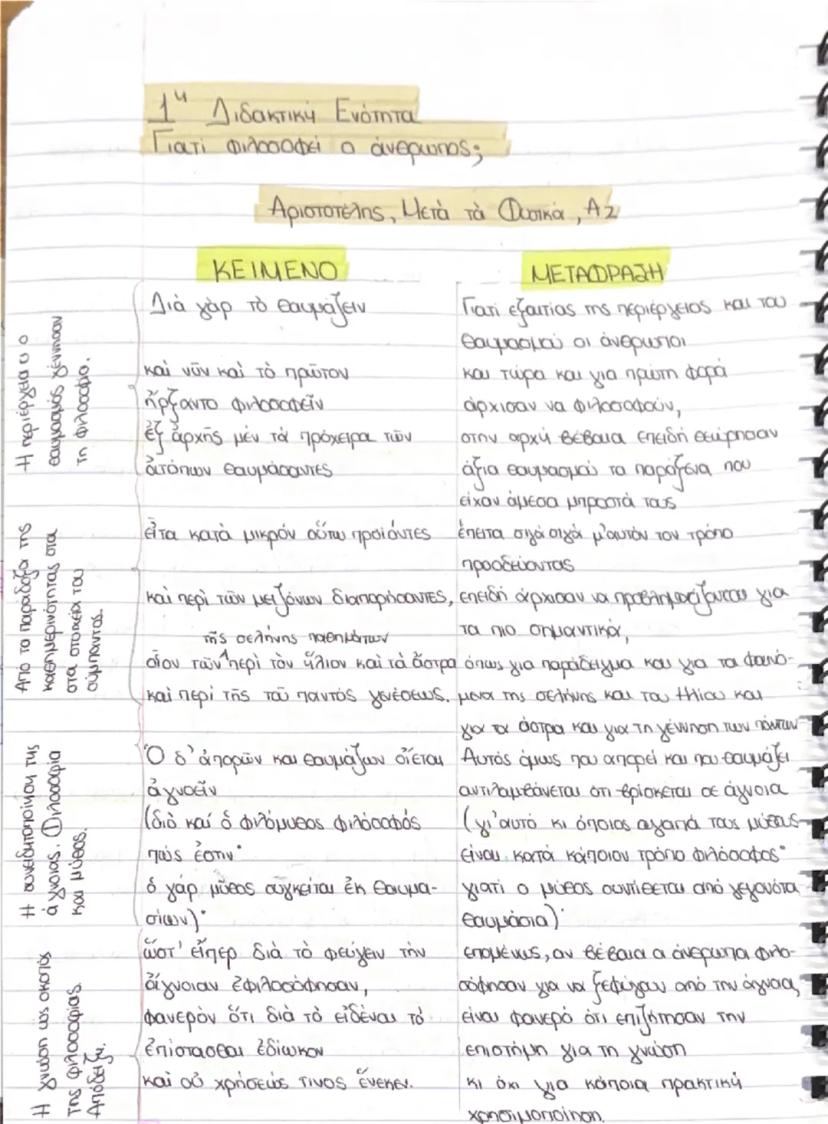 1η Διδακτική Ενότητα
Γιατί φιλοσοφεί ο άνθρωπος;
Αριστοτέλης, Μετά τα Φυσικά, Α2
ΚΕΙΜΕΝΟ
Διά γάρ τό θαυμάζειν
καί νῦν καί τὸ πρῶτον
ἤρξαντο φιλοσοφεῖν
ἐξ ἀρχῆς μέν τά πρόχειρα τῶν
ἀτόπων θαυμάσαντες
εἶτα κατά μικρόν οὕτω προϊόντες
καί περί τῶν μειζόνων διαπορήσαντες,
τῆς σελήνης παθημάτων
οἷον τῶν περί τόν ἥλιον καί τά ἄστρα
καί περί τῆς τοῦ παντός γενέσεως.
Ὁ δ' ἀπορῶν και θαυμάζων οἴεται
ἀγνοεῖν
(διό καί ὁ φιλόμυθος φιλόσοφός
πώς ἐστιν·
ὁ γάρ μῦθος σύγκειται ἐκ θαυμα-
σίων)·
ὥστ' εἴπερ διά τό φεύγειν τήν
ἄγνοιαν ἐφιλοσόφησαν,
φανερόν ὅτι διά τό εἰδέναι τό
ἐπίστασθαι ἐδίωκον
καί οὐ χρήσεώς τινος ἕνεκεν.
ΜΕΤΑΦΡΑΣΗ
Γιατί εξαιτίας της περιέργειας και του
θαυμασμού οι άνθρωποι
και τώρα και για πρώτη φορά
άρχισαν να φιλοσοφούν,
στην αρχή βέβαια επειδή θεώρησαν
άξια θαυμασμού τα παράξενα που
είχαν άμεσα μπροστά τους
έπειτα σιγά σιγά μ'αυτόν τον τρόπο
προοδεύοντας
επειδή άρχισαν να προβληματίζονται για
τα πιο σημαντικά,
όπως για παράδειγμα και για τα φαινό-
μενα της σελήνης και του ήλιου και
για τα άστρα και για τη γέννηση των πάντων
Αυτός όμως που απορεί και που θαυμάζει
αντιλαμβάνεται ότι βρίσκεται σε άγνοια
(γι'αυτό κι όποιος αγαπά τους μύθους
είναι κατά κάποιον τρόπο φιλόσοφος·
γιατί ο μύθος συντίθεται από γεγονότα
θαυμάσια)·
επομένως, αν βέβαια οι άνθρωποι φιλο-
σόφησαν για να ξεφύγουν από την άγνοια,
είναι φανερό ότι επιζήτησαν την
επιστήμη για τη γνώση
κι όχι για κάποια πρακτική
χρησιμοποίηση.
Η περιέργεια ο ο
θαυμασμός γέννησαν
τη φιλοσοφία.
Από τα παράδοξα της
καθημερινότητας στα
στα στοιχεία του
σύμπαντος.
Η συνειδητοποίηση της
άγνοιας. Φιλοσοφία
και μύθος.
Η γνώση ως σκοπός
της φιλοσοφίας.
Απόδειξη.